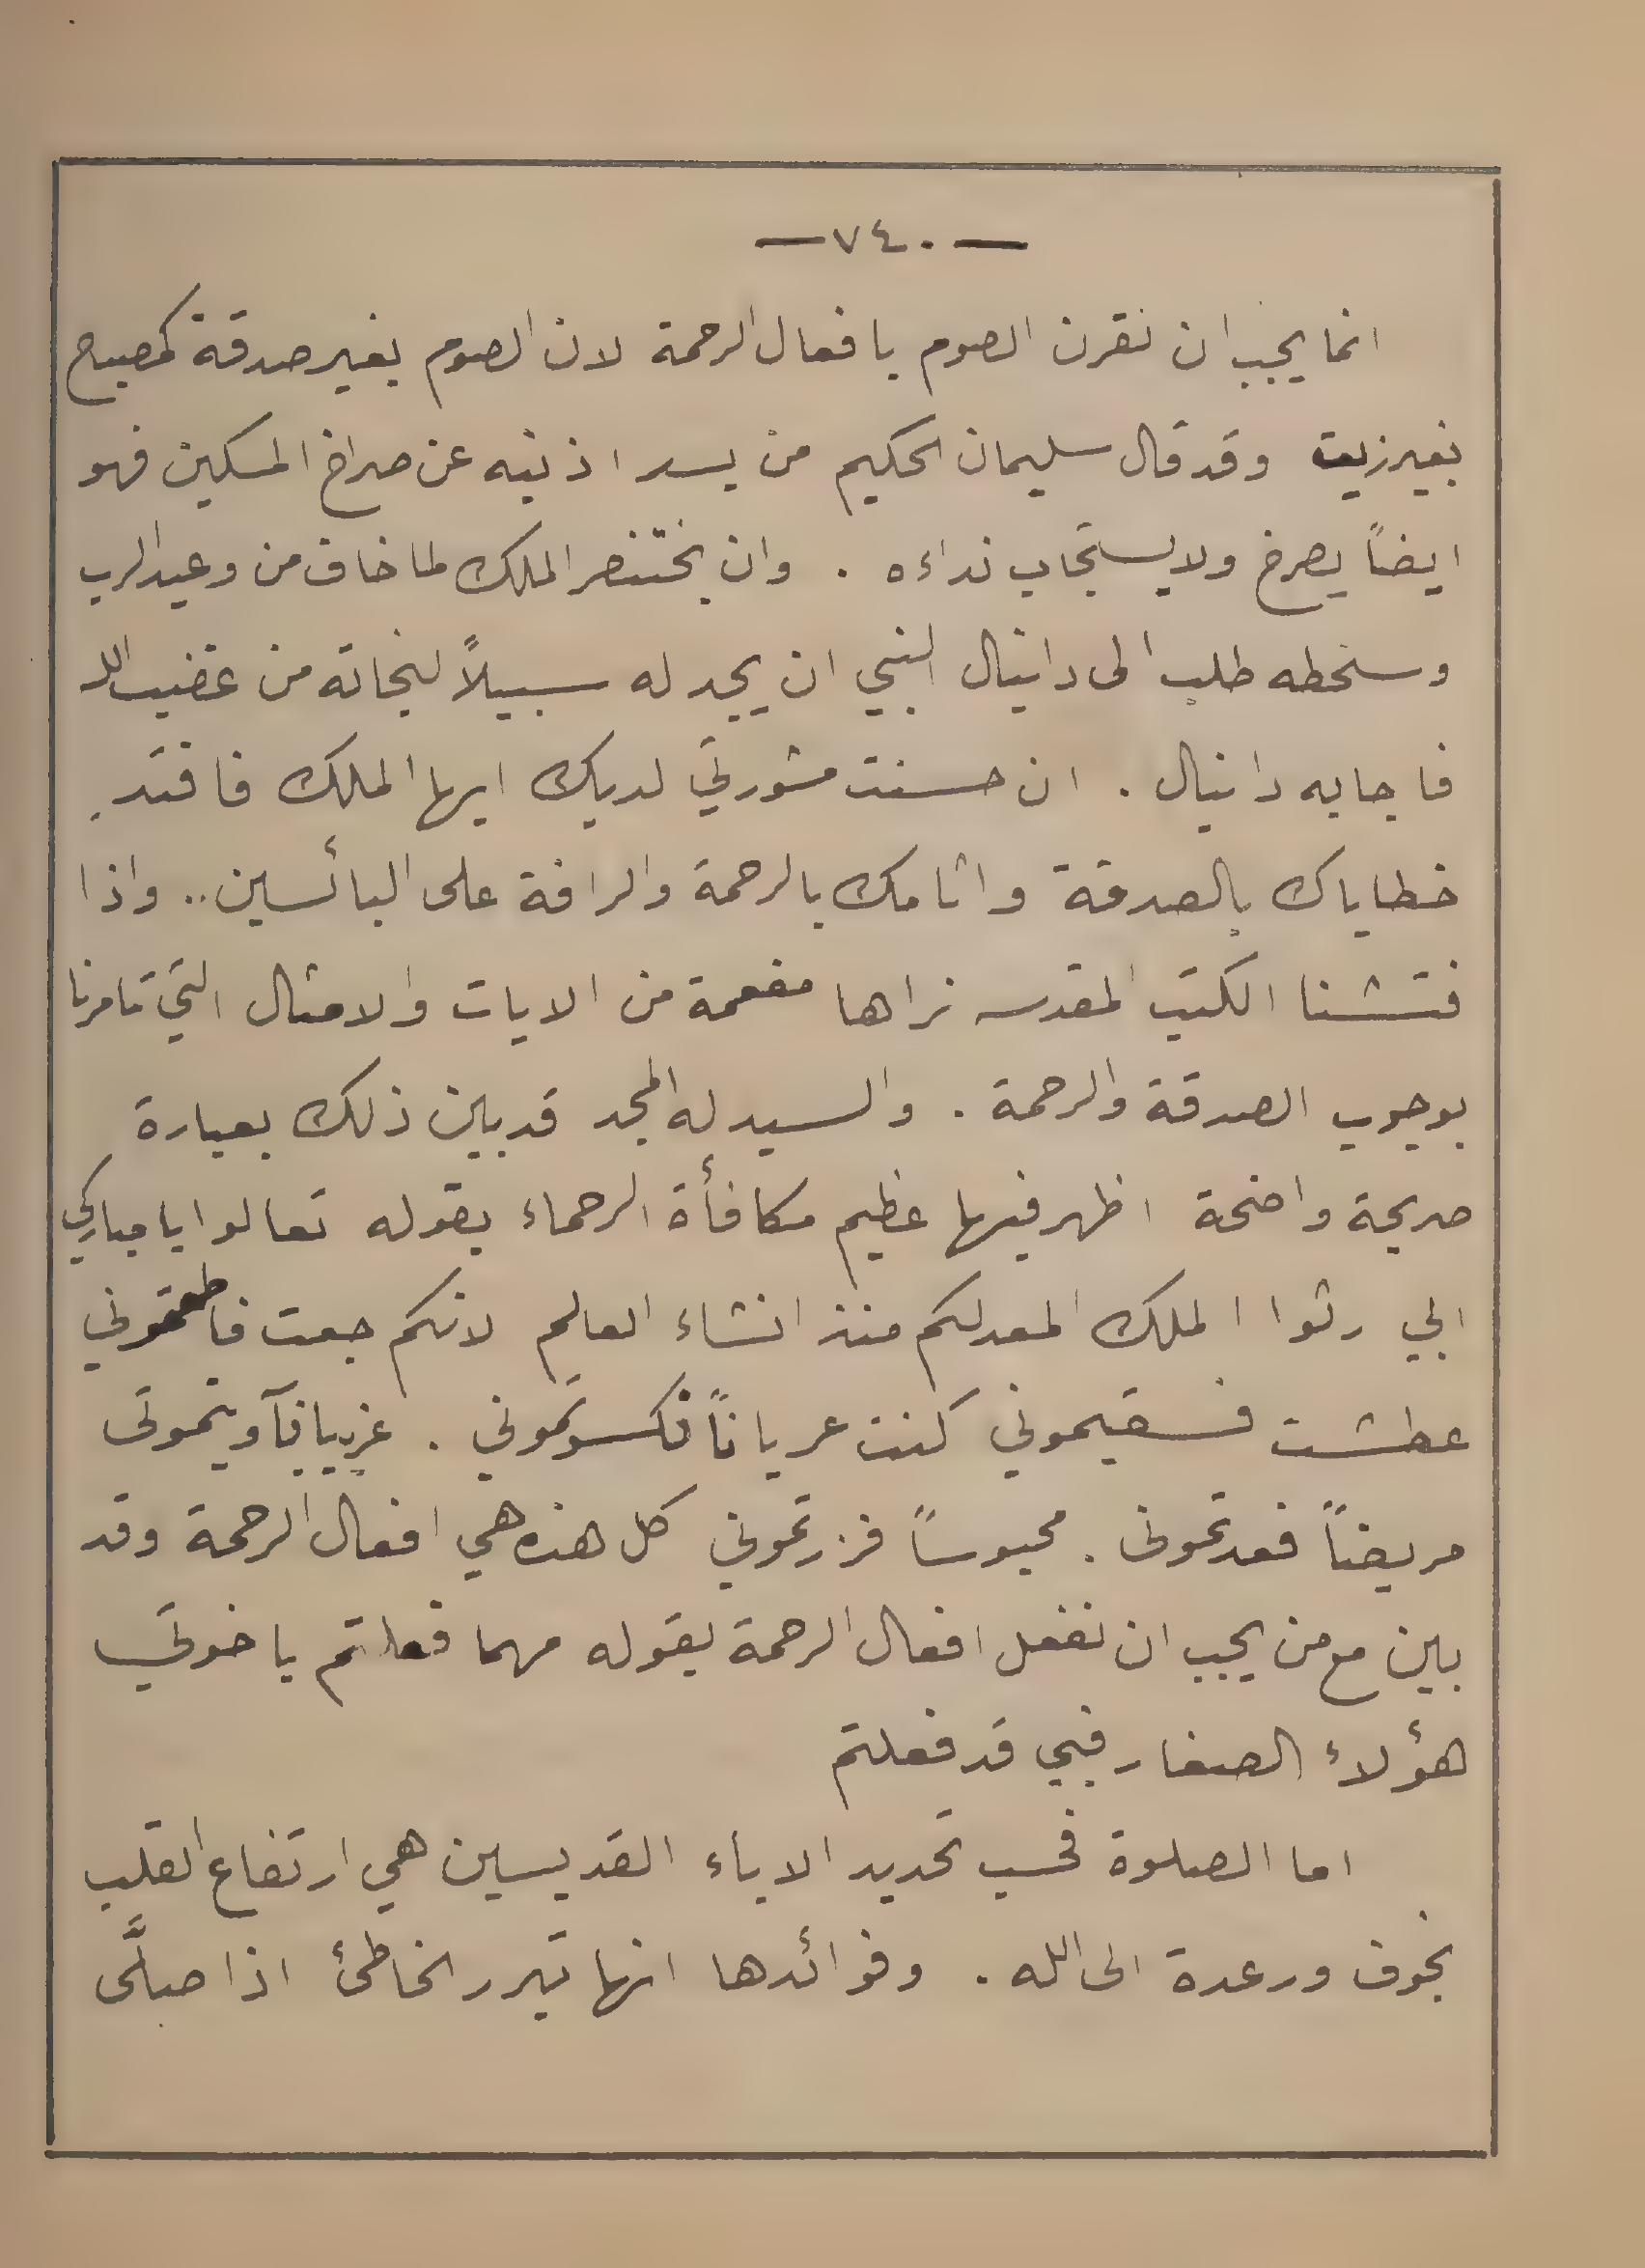 — ٧٤٠ —
انما يجب ان نقرن الصوم بافعال الرحمة لان الصوم بغير صدقة كمصباح
بغير زيت وقد قال سليمان الحكيم من يسد اذنيه عن صراخ المسكين فهو
ايضاً يصرخ ولا يستجاب نداءه . وان بختنصر الملك لما خاف من وعيد الرب
وسخطه طلب الى دانيال النبي ان يجد له سبيلاً لنجاته من غضب الله
فاجابه دانيال . ان حسنت مشورتي لديك ايها الملك فافتدِ
خطاياك بالصدقة واثامك بالرحمة والرافة على البائسين .. واذا
فتشنا الكتب المقدسه نراها مفعمة من الايات والامثال التي تامرنا
بوجوب الصدقة والرحمة . والسيد له المجد قد بين ذلك بعبارة
صريحة واضحة اظهر فيها عظيم مكافأة الرحماء بقوله تعالوا يا مباركي
ابي رثوا الملك المعد لكم منذ انشاء العالم لانكم جعت فاطعمتموني
عطشت فسقيموني كنت عرياناً فكسوتموني . غريبا فآويتموتى
مريضاً فعدتمونى . محبوساً فزرتموني كل هذه هي افعال الرحمة وقد
بين مع من يجب ان نفعل افعال الرحمة بقوله مهما فعلتم باخوتي
هؤلاء الصغار فبي قد فعلتم
اما الصلوة فحسب تحديد الاباء القديسين هي ارتفاع القلب
بخوف ورعدة الى الله . وفوائدها انها تبرر الخاطئ اذا صلَّى